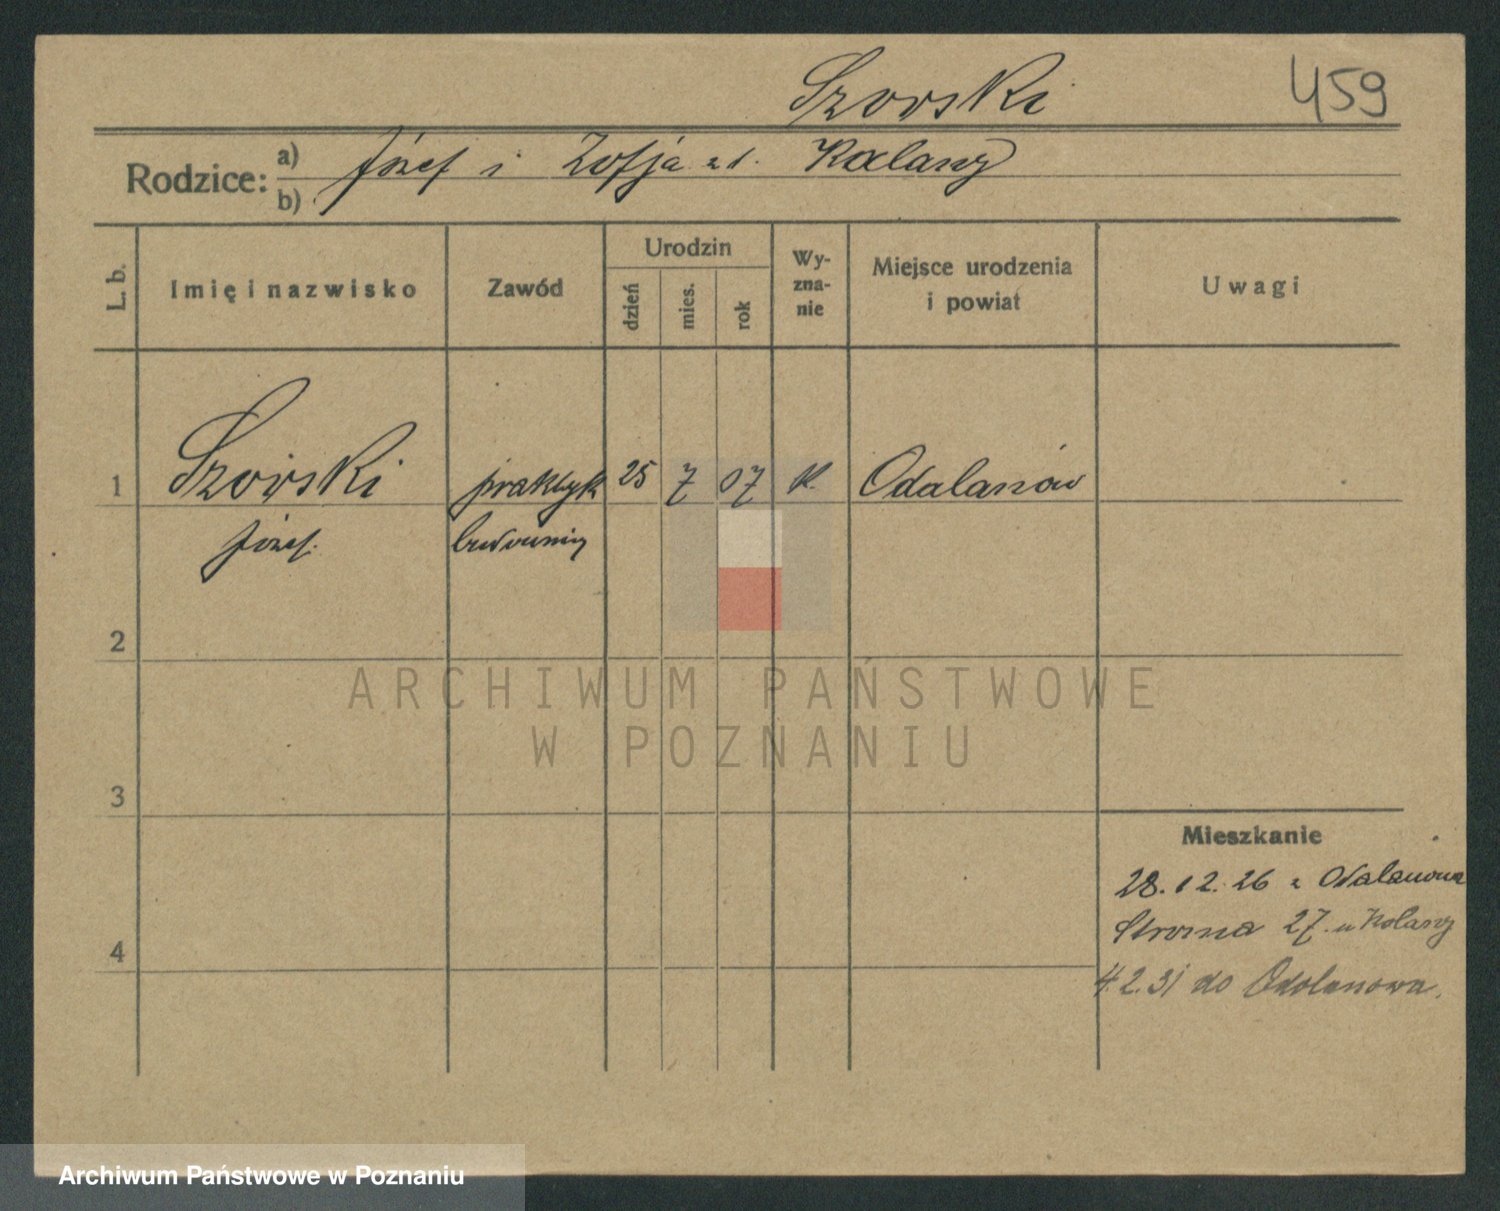 Szorski 459
Rodzice: a) Józef i Zofja z d. Kalasz
b)
L. b. Imię i nazwisko Zawód Urodzin dzień mies. rok Wy-zna-nie Miejsce urodzenia i powiat Uwagi
1 Szorski praktyk 25 7 07 k. Odalanów
Józef.
2
ARCHIWUM PAŃSTWOWE
W POZNANIU
3
Mieszkanie
28.12.26 z Odalanowa
Stroma 27. u Kolasz
4
4.2.31 do Odolanowa.
Archiwum Państwowe w Poznaniu